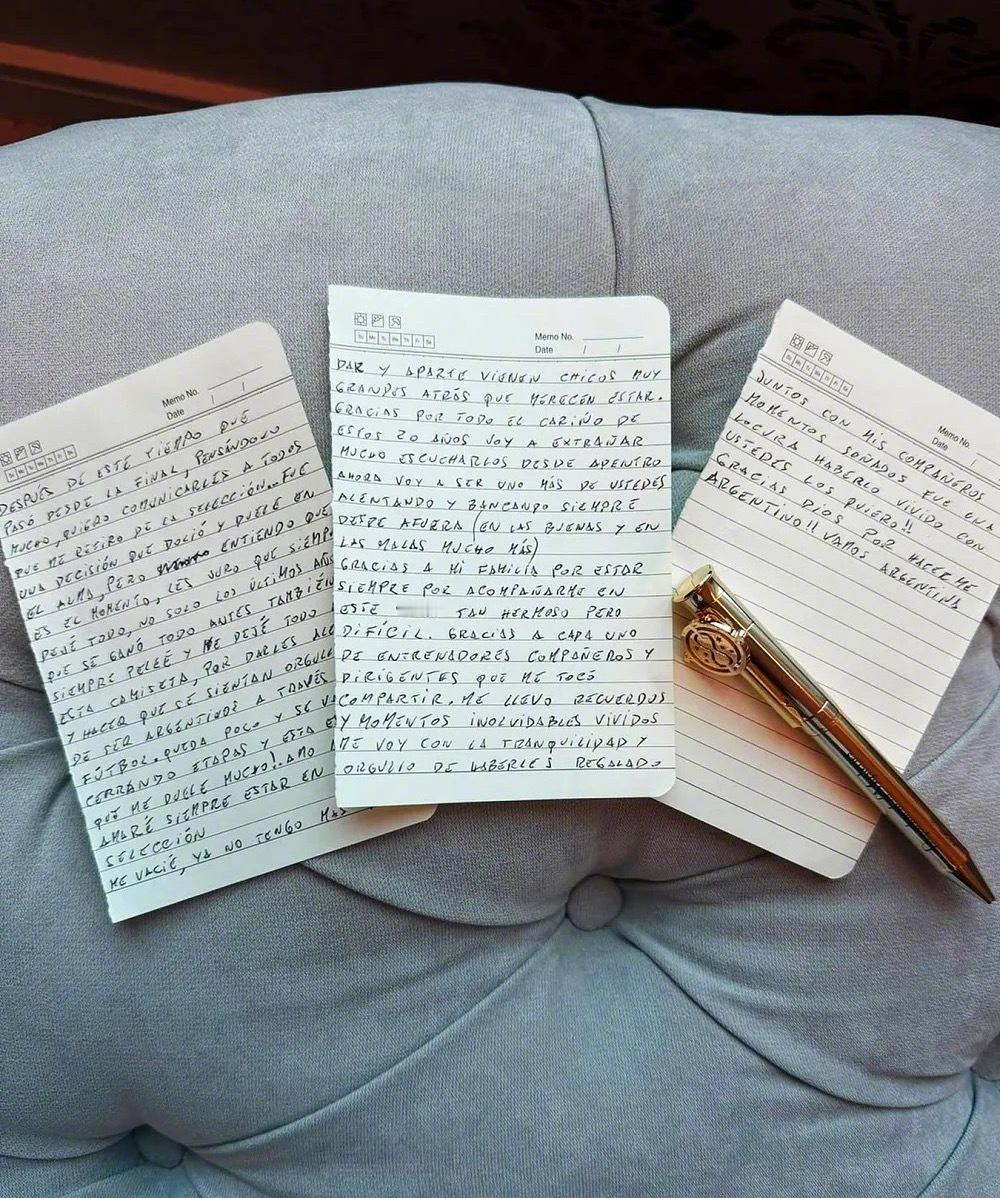 Memo No.
Date / /
DESPUÉS DE ESTE TIEMPO QUE
PASÓ DESDE LA FINAL, PENSÁNDOLO
MUCHO, QUIERO COMUNICARLES A TODOS
QUE ME RETIRO DE LA SELECCIÓN... FUE
UNA DECISIÓN QUE DOLIÓ Y DUELE EN
EL ALMA, PERO ENTIENDO QUE
ES EL MOMENTO, LES JURO QUE SIEMP
DEJÉ TODO, NO SOLO LOS ÚLTIMOS AÑ
QUE SE GANÓ TODO ANTES TAMBIÉN
SIEMPRE PELEÉ Y ME DEJÉ TODO
ESTA CAMISETA, POR DARLES ALE
Y HACER QUE SE SIENTAN ORGULL
DE SER ARGENTINOS A TRAVÉS
FÚTBOL. QUEDA POCO Y SE V
CERRANDO ETAPAS Y ESTA E
QUE ME DUELE MUCHO!. AMO
AMARÉ SIEMPRE ESTAR EN
SELECCIÓN
ME VACIÉ, YA NO TENGO MÁS
Su Mo Tu We Th Fr Sa
Memo No.
Date / /
DAR Y APARTE VIENEN CHICOS MUY
GRANDES ATRÁS QUE MERECEN ESTAR.
GRACIAS POR TODO EL CARIÑO DE
ESTOS 20 AÑOS VOY A EXTRAÑAR
MUCHO ESCUCHARLOS DESDE ADENTRO
AHORA VOY A SER UNO MÁS DE USTEDES
ALENTANDO Y BANCANDO SIEMPRE
DESDE AFUERA (EN LAS BUENAS Y EN
LAS MALAS MUCHO MÁS)
GRACIAS A MI FAMILIA POR ESTAR
SIEMPRE POR ACOMPAÑARME EN
ESTE TAN HERMOSO PERO
DIFÍCIL. GRACIAS A CADA UNO
DE ENTRENADORES COMPAÑEROS Y
DIRIGENTES QUE ME TOCÓ
COMPARTIR. ME LLEVO RECUERDOS
Y MOMENTOS INOLVIDABLES VIVIDOS
ME VOY CON LA TRANQUILIDAD Y
ORGULLO DE HABERLES REGALADO
Memo No.
Date / /
JUNTOS CON MIS COMPAÑEROS
MOMENTOS SOÑADOS FUE UNA
LOCURA HABERLO VIVIDO CON
USTEDES LOS QUIERO!!
GRACIAS DIOS POR HACERME
ARGENTINO!! VAMOS ARGENTINA